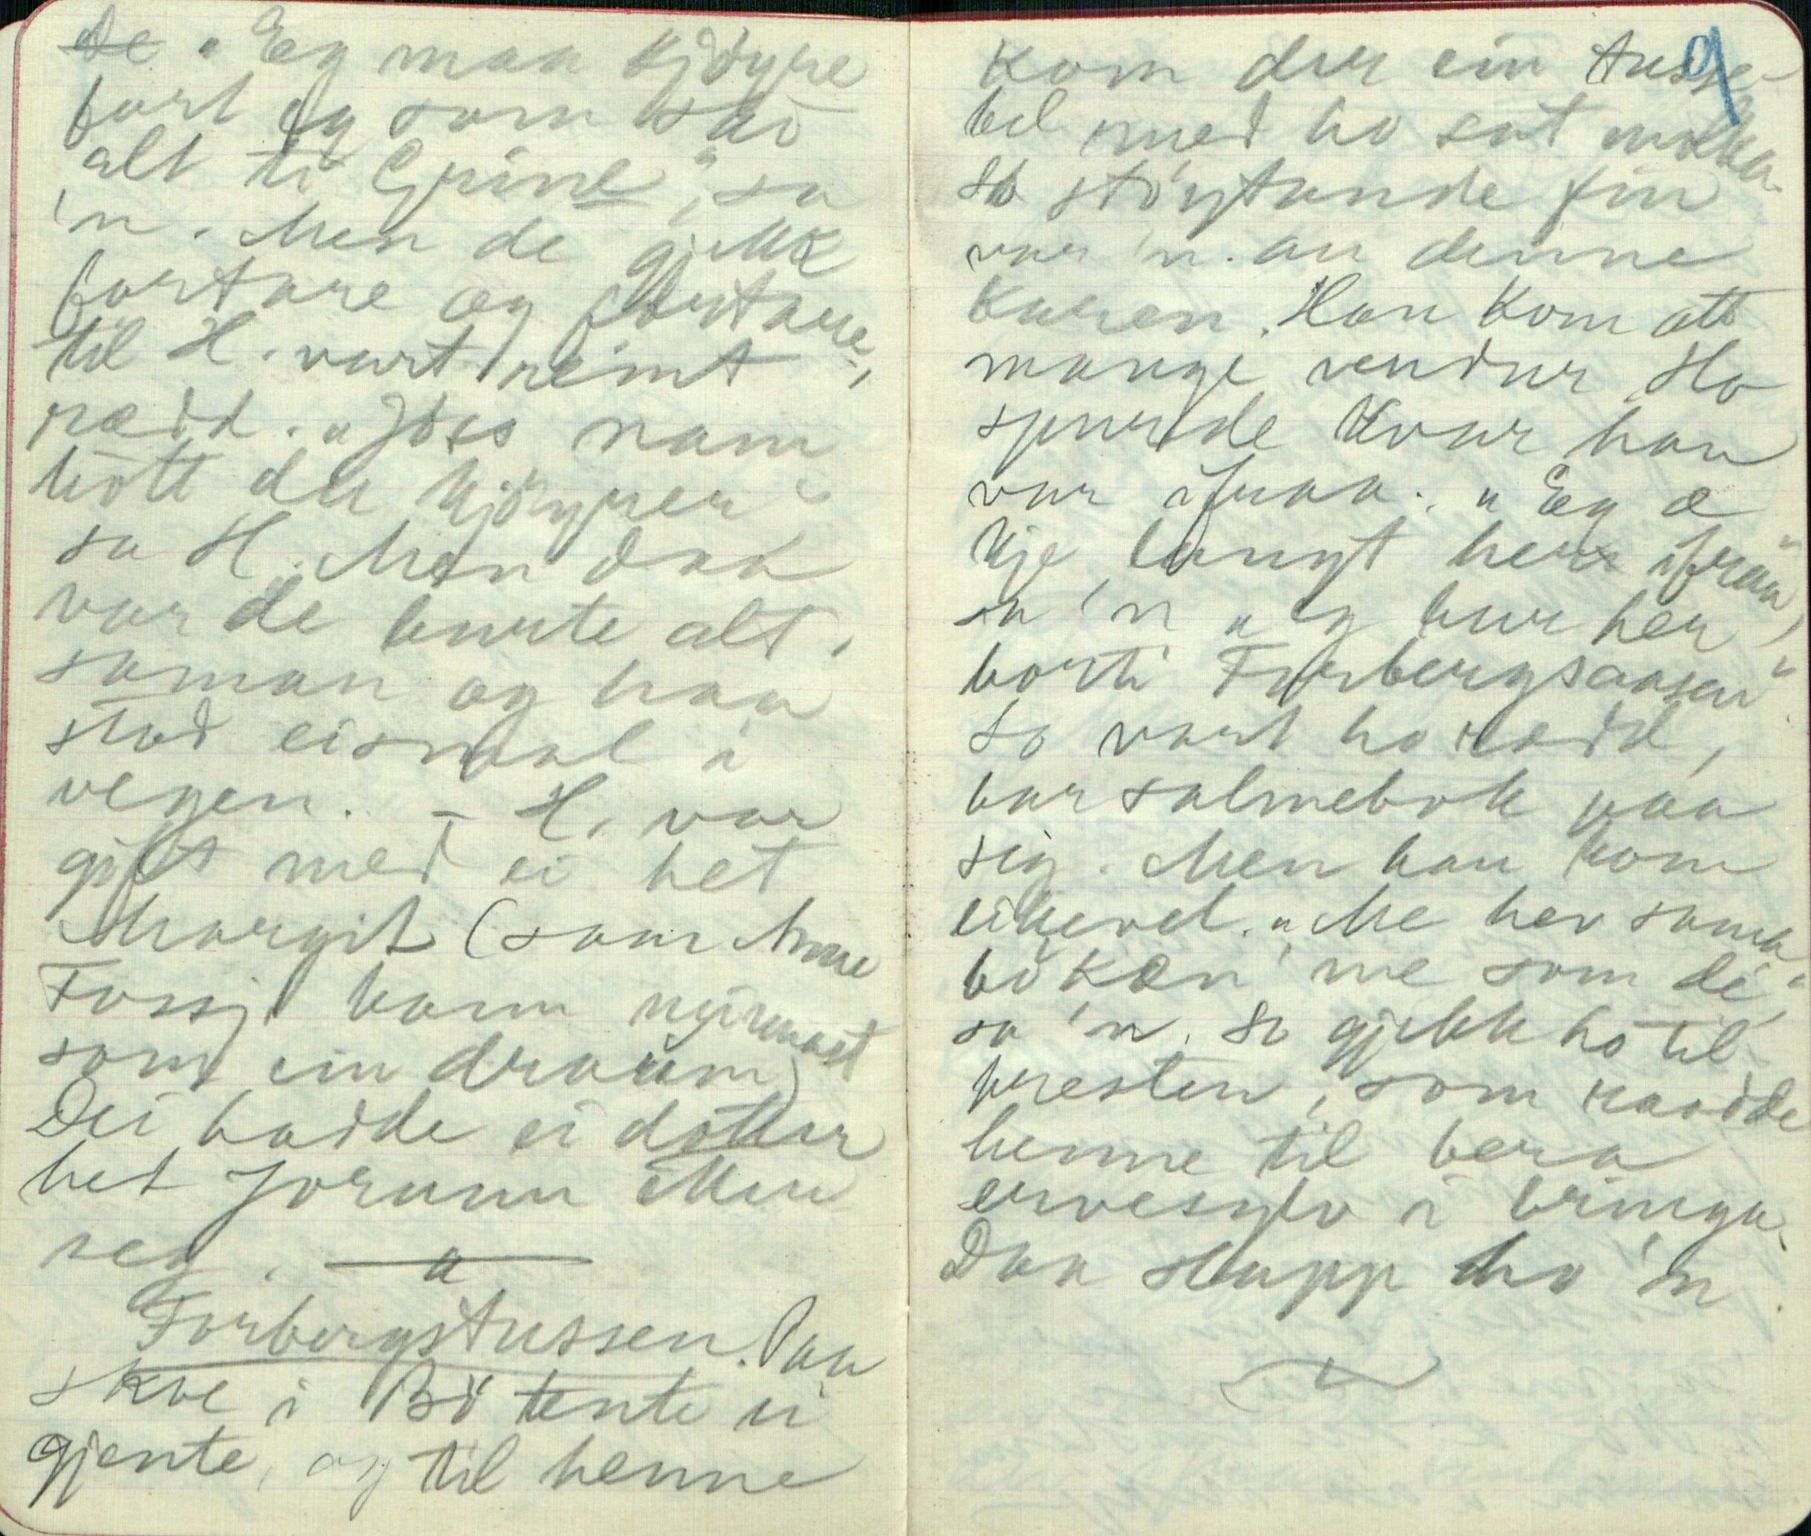 De "Eg maa kjöyre
fort eg som ska
alt ti Grine", sa
'n. Men de gjekk
fortare og fortare,
til H. vart reint
rædd. "Jöss nam
hött du kjöyrer"
sa H. Men daa
var de burte alt
saman og han
stod eismal i
vegen. – H. var
gift med ei het
Margit (som Anne
Fossj kom
som ein draum)
Dei hadde ei dotter
het Jorunn
seg.
Forbergstussen. Paa
Skoe i Bö tente ei
gjente, og til henne
9
kom der ein tusse-
bel med ho sat molka.
So stöytande fin
var 'n. au denne
karen. Han kom att
mange vendur. Ho
spurde kvar han
var ifraa. "Eg æ
kje langt her ifraa",
sa 'n "eg bur her
borti Forbergsaasen".
So vart ho rædd,
bar salmebok paa
sig. Men han kom
likevel. "Me hev same
boken me som de"
sa 'n. So gjekk ho til
presten, som raadde
henne til bera
ervesylv i bringa.
Daa slapp ho 'n.